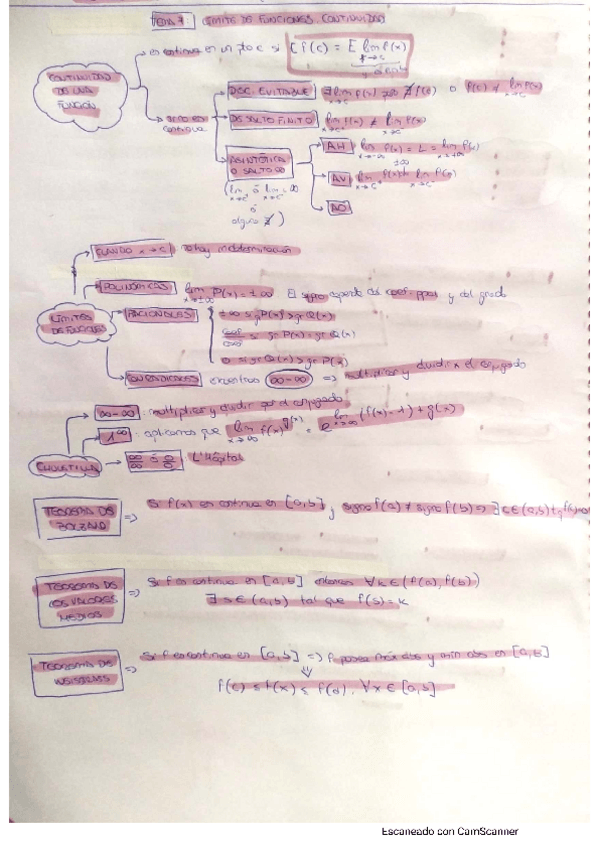 TEMA 7: LÍMITE DE FUNCIONES. CONTINUIDAD
CONTINUIDAD DE UNA FUNCIÓN
es continua en un pto c si [f(c) = [∃ lim f(x)
x→c
si no es continua
DISC. EVITABLE ∃ lim f(x) pero ∄ f(c) o f(c) ≠ lim f(x)
x→c x→c
DE SALTO FINITO lim f(x) ≠ lim f(x)
x→c⁻ x→c⁺
ASINTÓTICA O SALTO ∞
(lim ó lim = ∞
ó alguno ∄)
AH lim f(x) = L = lim f(x)
x→-∞ x→+∞
AV lim f(x) lim f(x)
AO
LÍMITES DE FUNCIONES
CUANDO x→c no hay indeterminación
POLINÓMICAS lim P(x) = ±∞ El signo depende del coef. ppal y del grado
x→±∞
RACIONALES ±∞ si gr P(x) > gr Q(x)
coef/coef si gr P(x) = gr Q(x)
0 si gr Q(x) > gr P(x)
CON RADICALES encontramos ∞-∞ => multiplicar y dividir x el conjugado
CHULETILLA
∞-∞ : multiplicar y dividir por el conjugado
1^∞ : aplicamos que lim f(x)^g(x) = e^lim (f(x)-1)·g(x)
x→∞ x→∞
∞/∞ ó 0/0 → L'Hôpital
TEOREMA DE BOLZANO => Si f(x) es continua en [a,b] y signo f(a) ≠ signo f(b) => ∃ c∈(a,b) tq f(c)=0
TEOREMA DE LOS VALORES MEDIOS => Si f es continua en [a,b] entonces ∀k∈(f(a), f(b))
∃ s∈(a,b) tal que f(s)=k
TEOREMA DE => Si f es continua en [a,b] => f posee máx abs y mín abs en [a,b]
⇓
f(c) ≤ f(x) ≤ f(d), ∀x∈[a,b]
Escaneado con CamScanner